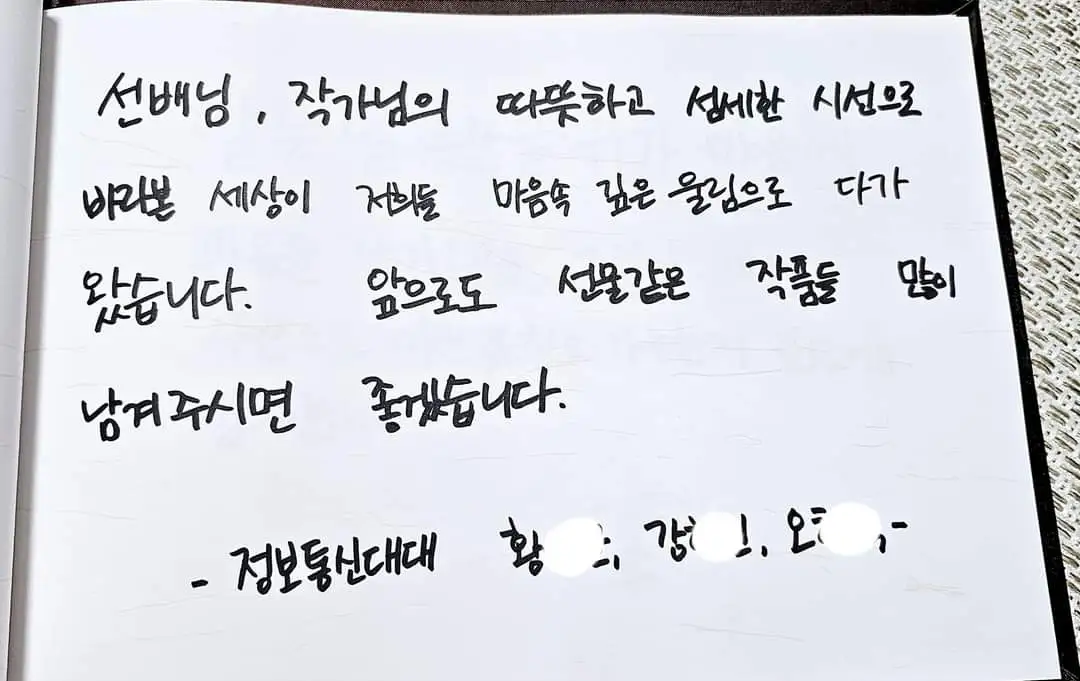 선배님, 작가님의 따뜻하고 섬세한 시선으로
바라본 세상이 저희들 마음속 깊은 울림으로 다가
왔습니다. 앞으로도 선물같은 작품들 많이
남겨주시면 좋겠습니다.
- 정보통신대대 황 , 강 , 오 , -